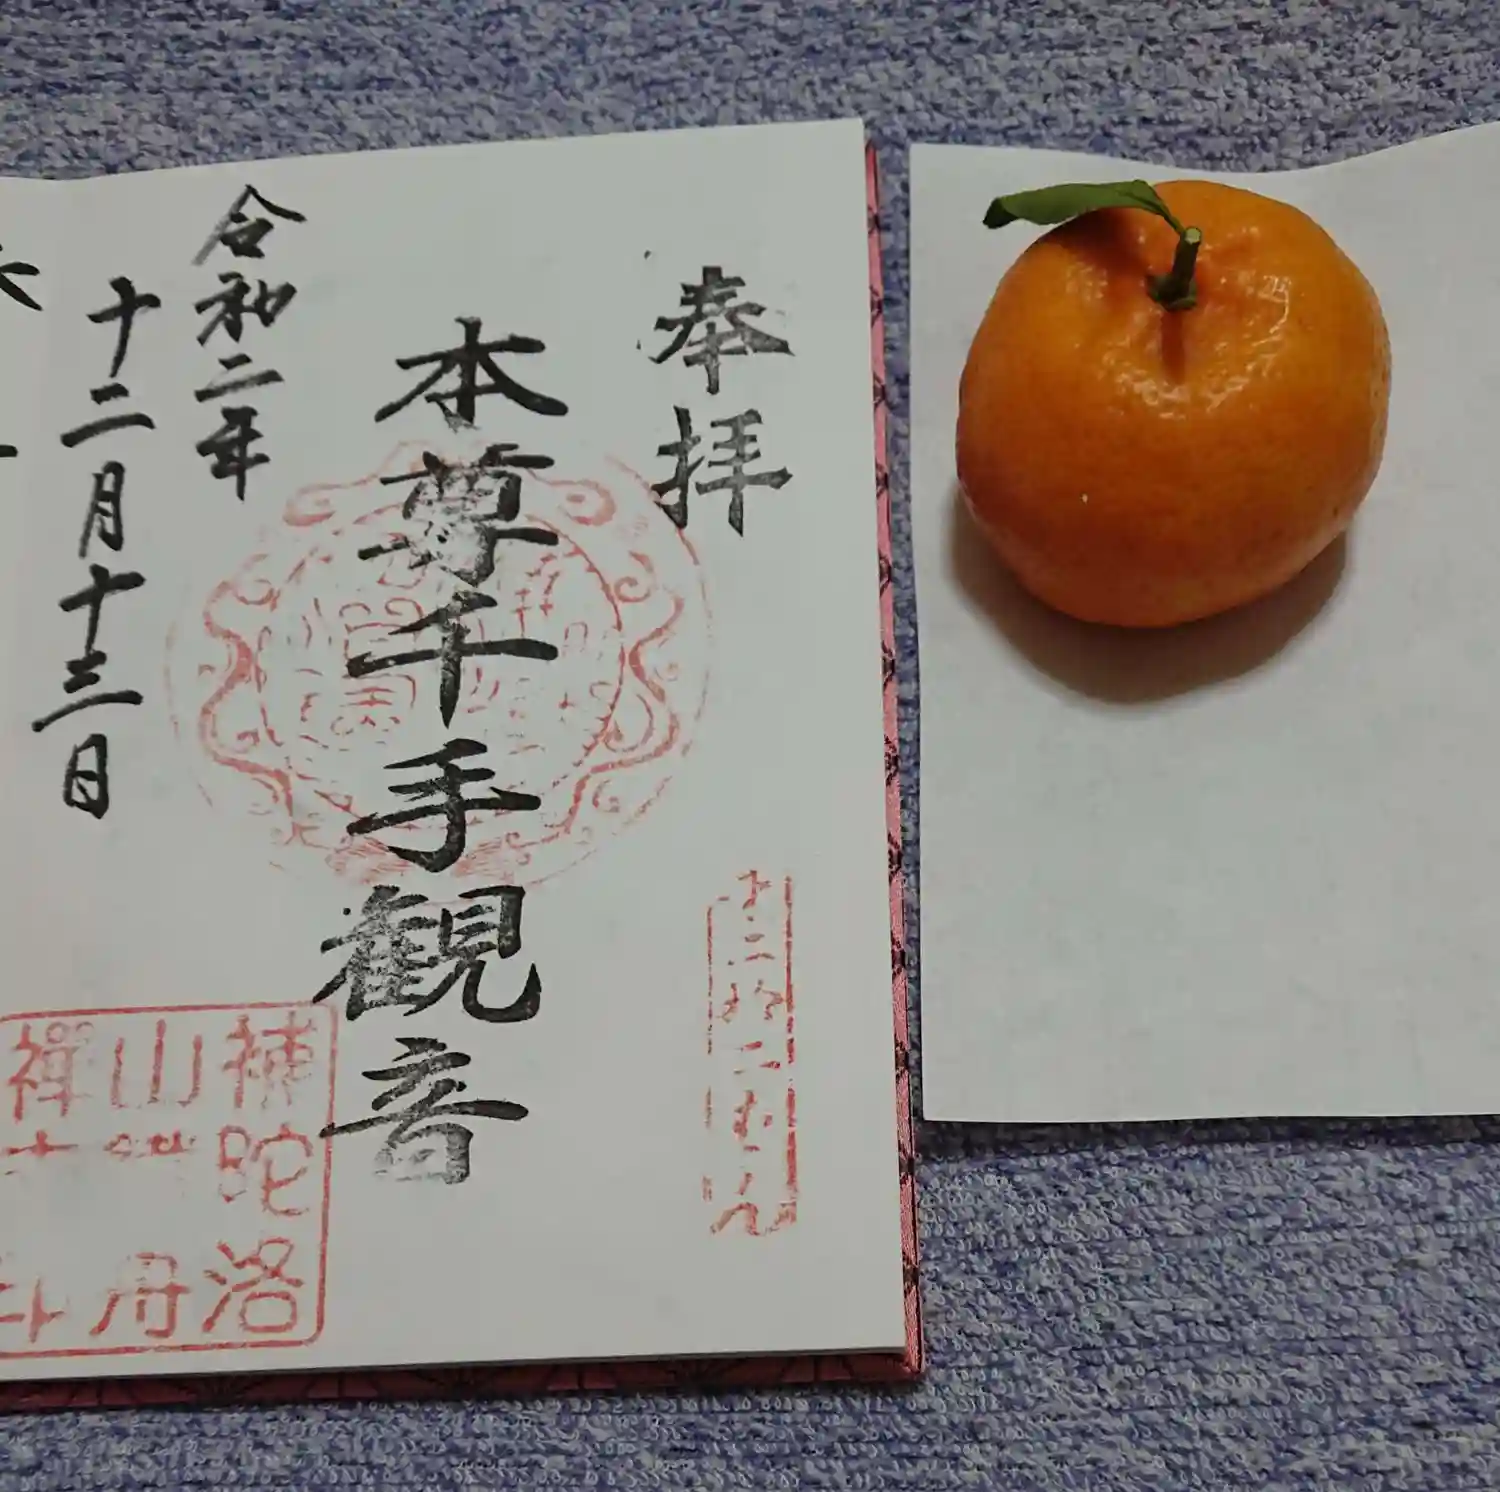 奉拝
本尊千手観音
令和二年
十二月十三日
補陀洛
山
禅